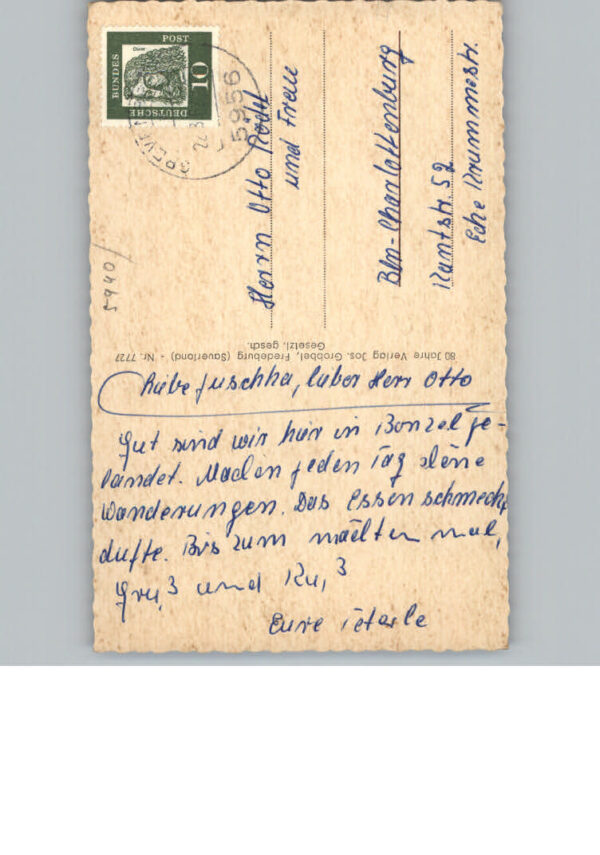 DEUTSCHE
BUNDES
POST
10
Dürer
5956
Herrn Otto
und Frau
Bln-Charlottenburg
Kantstr. 52
Ecke Krummestr.
5940/
80 Jahre Verlag Jos. Grobbel, Fredeburg (Sauerland) - Nr. 7727
Gesetzl. gesch.
Liebe Juschka, lieber Herr Otto
Gut sind wir hier in Bonzel ge-
landet. Machen jeden Tag schöne
Wanderungen. Das Essen schmeckt
dufte. Bis zum nächsten mal,
Gru,3 und Ku,3
Eure